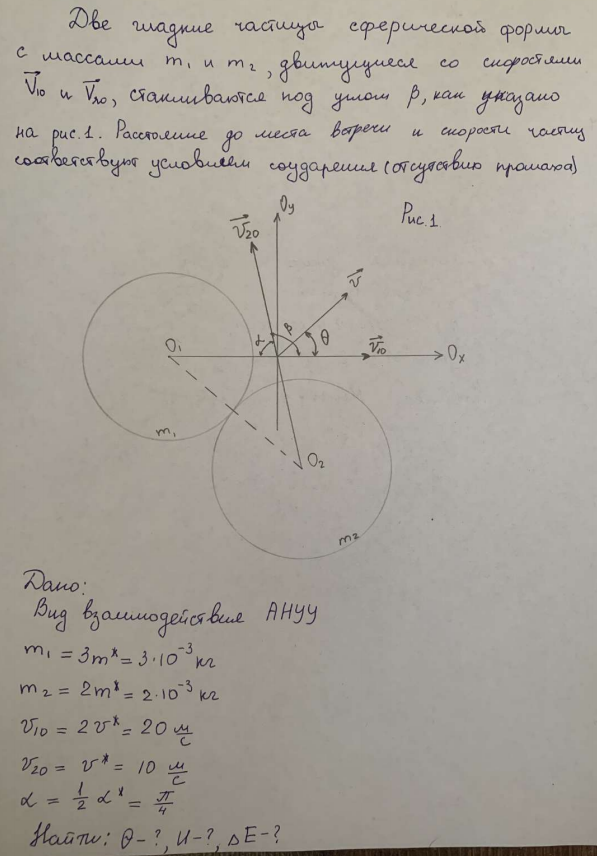 Две гладкие частицы сферической формы
с массами m₁ и m₂, движущиеся со скоростями
V⃗₁₀ и V⃗₂₀, сталкиваются под углом β, как указано
на рис.1. Расстояние до места встречи и скорости частиц
соответствуют условиям соударения (отсутствию промаха)
Рис.1.
Oy
v⃗₂₀
v⃗
α
β
θ
O₁
v⃗₁₀
Ox
m₁
O₂
m₂
Дано:
Вид взаимодействия АНУУ
m₁ = 3m* = 3·10⁻³ кг
m₂ = 2m* = 2·10⁻³ кг
v₁₀ = 2v* = 20 м/с
v₂₀ = v* = 10 м/с
α = 1/2 α* = π/4
Найти: θ-?, U-?, ΔE-?